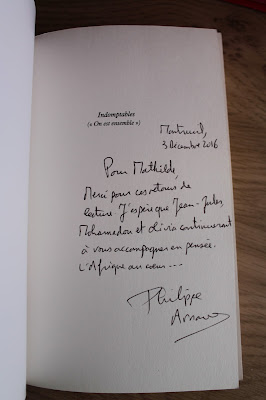 Indomptables
(« On est ensemble »)
Montreuil,
3 Décembre 2016
Pour Mathilde,
Merci pour ces retours de
lecture J'espère que Jean-Jules
Mohamadou et Olivia continueront
à vous accompagner en pensée.
L'Afrique au cœur ...
Philippe
Arnaud